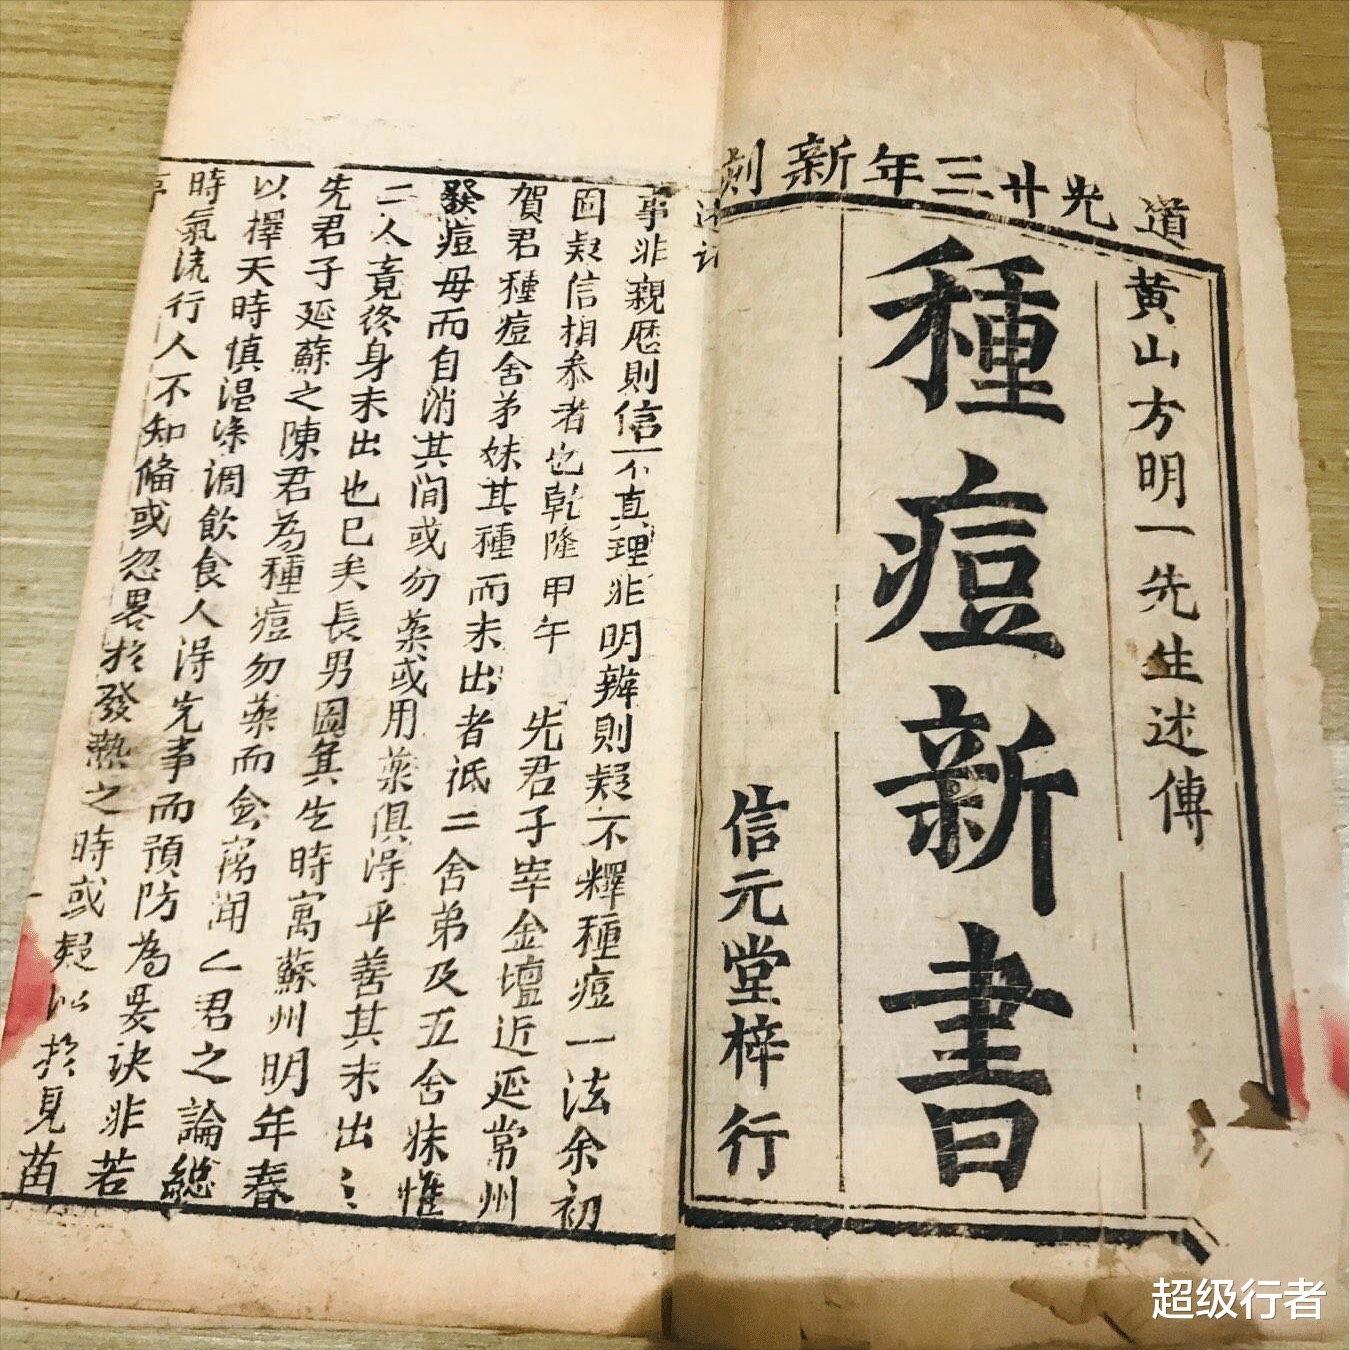 道光廿三年新刻
黄山方明一先生述傳
種痘新書
信元堂梓行
事非親歷則信不真理非明辨則疑不釋種痘一法余初
固疑信相參者也乾隆甲午 先君子宰金壇近延常州
賀君種痘舍弟妹其種而未出者祗二舍弟及五舍妹惟
發痘毋而自消其間或勿藥或用藥俱得平善其未出之
二人竟終身未出也已矣長男圖箕生時寓蘇州明年春
先君子延蘇之陳君為種痘勿藥而僉竊聞二君之論總
以擇天時慎温凉調飲食人得先事而預防為要訣非若
時氣流行人不知備或忽畧於發熱之時或疑似於見苗
超级行者